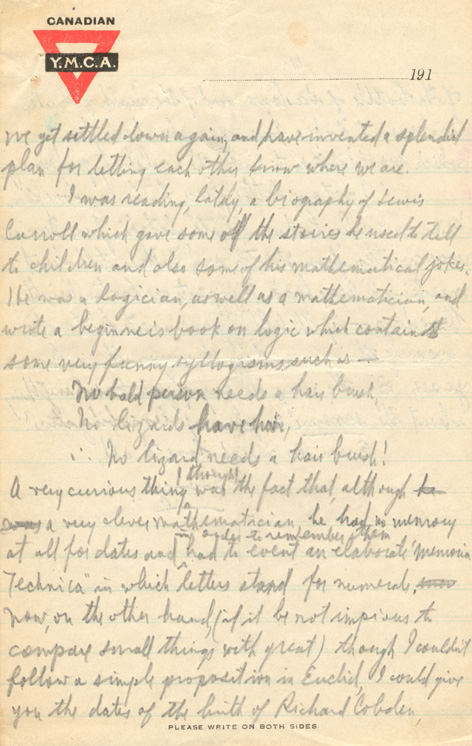 CANADIAN
Y.M.C.A.
191
we get settled down again, and have invented a splendid
plan for letting each other know where we are.
I was reading, lately, a biography of Lewis
Carroll which gave some of the stories he used to tell
to children and also some of his mathematical jokes.
He was a logician, as well as a mathematician, and
wrote a beginner's book on logic which contains
some very funny syllogisms such as —
No bald person needs a hair brush,
No lizards have hair,
∴ No lizard needs a hair brush!
A very curious thing, I thought, was the fact that although he
was a very clever mathematician he had no memory
at all for dates and had to invent an elaborate "Memoria
in order to remember them
Technica" in which letters stand for numerals,
Now, on the other hand, (if it be not impious to
compare small things with great) though I couldn't
follow a simple proposition in Euclid, I could give
you the dates of the birth of Richard Cobden,
PLEASE WRITE ON BOTH SIDES